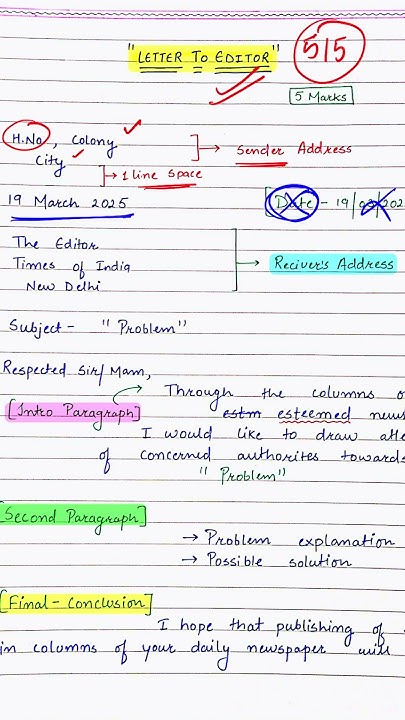 "LETTER TO EDITOR"
5/5
5 Marks
H.No, Colony
City
Sender Address
1 line space
19 March 2025
Date - 19/03/202
The Editor
Times of India
New Delhi
Reciver's Address
Subject - "Problem"
Respected Sir/Mam,
Through the columns o
[Intro Paragraph] estm esteemed news
I would like to draw atte
of concerned authorites towards
"Problem"
[Second Paragraph]
→ Problem explanation
→ Possible solution
[Final - Conclusion]
I hope that publishing of
in columns of your daily newspaper will